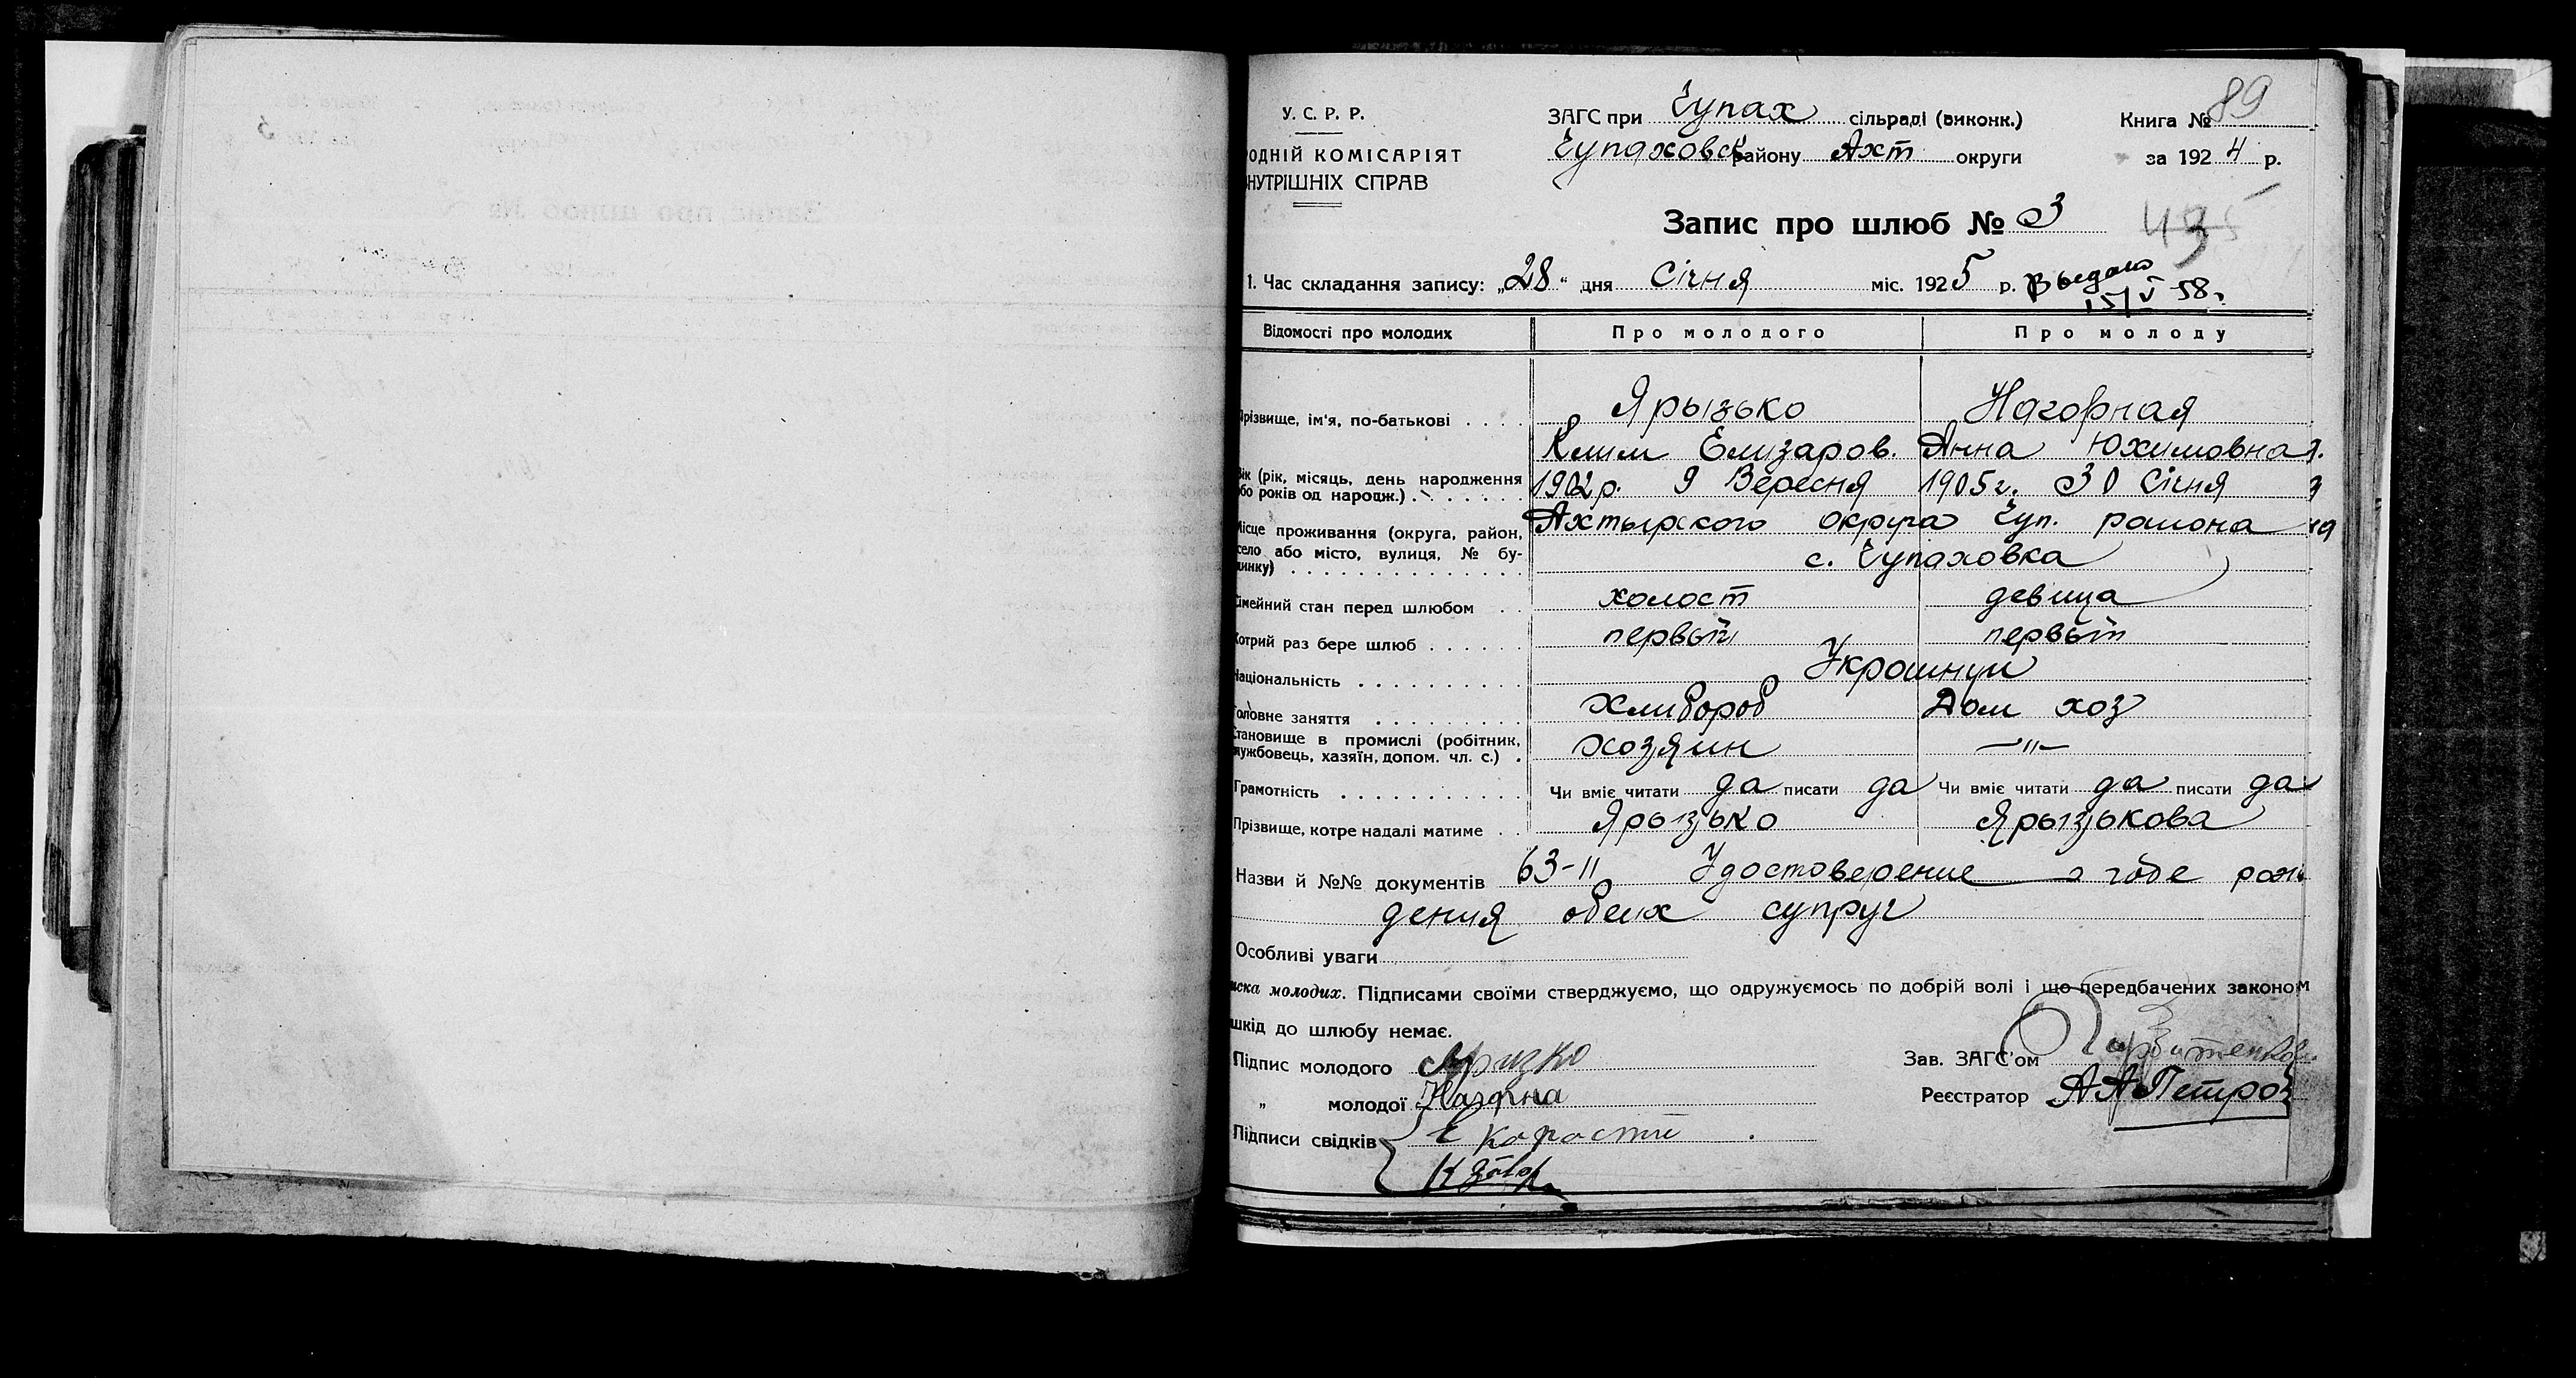 89
У. С. Р. Р.
ЗАГС при Чупах сільраді (виконк.)
Книга №
ОДНІЙ КОМІСАРІЯТ
Чупаховск району Ахт округи
за 1924 р.
НУТРІШНІХ СПРАВ
Запис про шлюб № 3
1. Час складання запису: „28“ дня Січня міс. 1925 р. Выдано
15/V 58г
Відомості про молодих Про молодого Про молоду
різвище, ім'я, по-батькові . . . . Ярызько Нагорная
Клим Елизаров. Анна Юхимовна
Вік (рік, місяць, день народження
або років од народж.) . . . . . . . 1902р. 9 Вересня 1905г. 30 Січня
Місце проживання (округа, район, Ахтырского округа Чуп. района
село або місто, вулиця, № бу-
динку) . . . . . . . . . . . . . . с. Чупаховка
Сімейний стан перед шлюбом . . холост девица
Котрий раз бере шлюб . . . . . . первый первый
Національність . . . . . . . . . . Украинци
Головне заняття . . . . . . . . . Хлибороб Дом хоз
Становище в промислі (робітник,
лужбовець, хазяїн, допом. чл. с.) . Хозяин —"—
Грамотність . . . . . . . . . . . Чи вміє читати да писати да Чи вміє читати да писати да
Прізвище, котре надалі матиме . . Ярызько Ярызькова
Назви й №№ документів 63-11 Удостоверение о годе рож
дения обеих супруг
Особливі уваги
иска молодих. Підписами своїми стверджуємо, що одружуємось по добрій волі і що передбачених законом
шкід до шлюбу немає.
Підпис молодого Яризко
Зав. ЗАГС'ом
„ молодої Нагорна
Реєстратор АА Петров
Підписи свідків